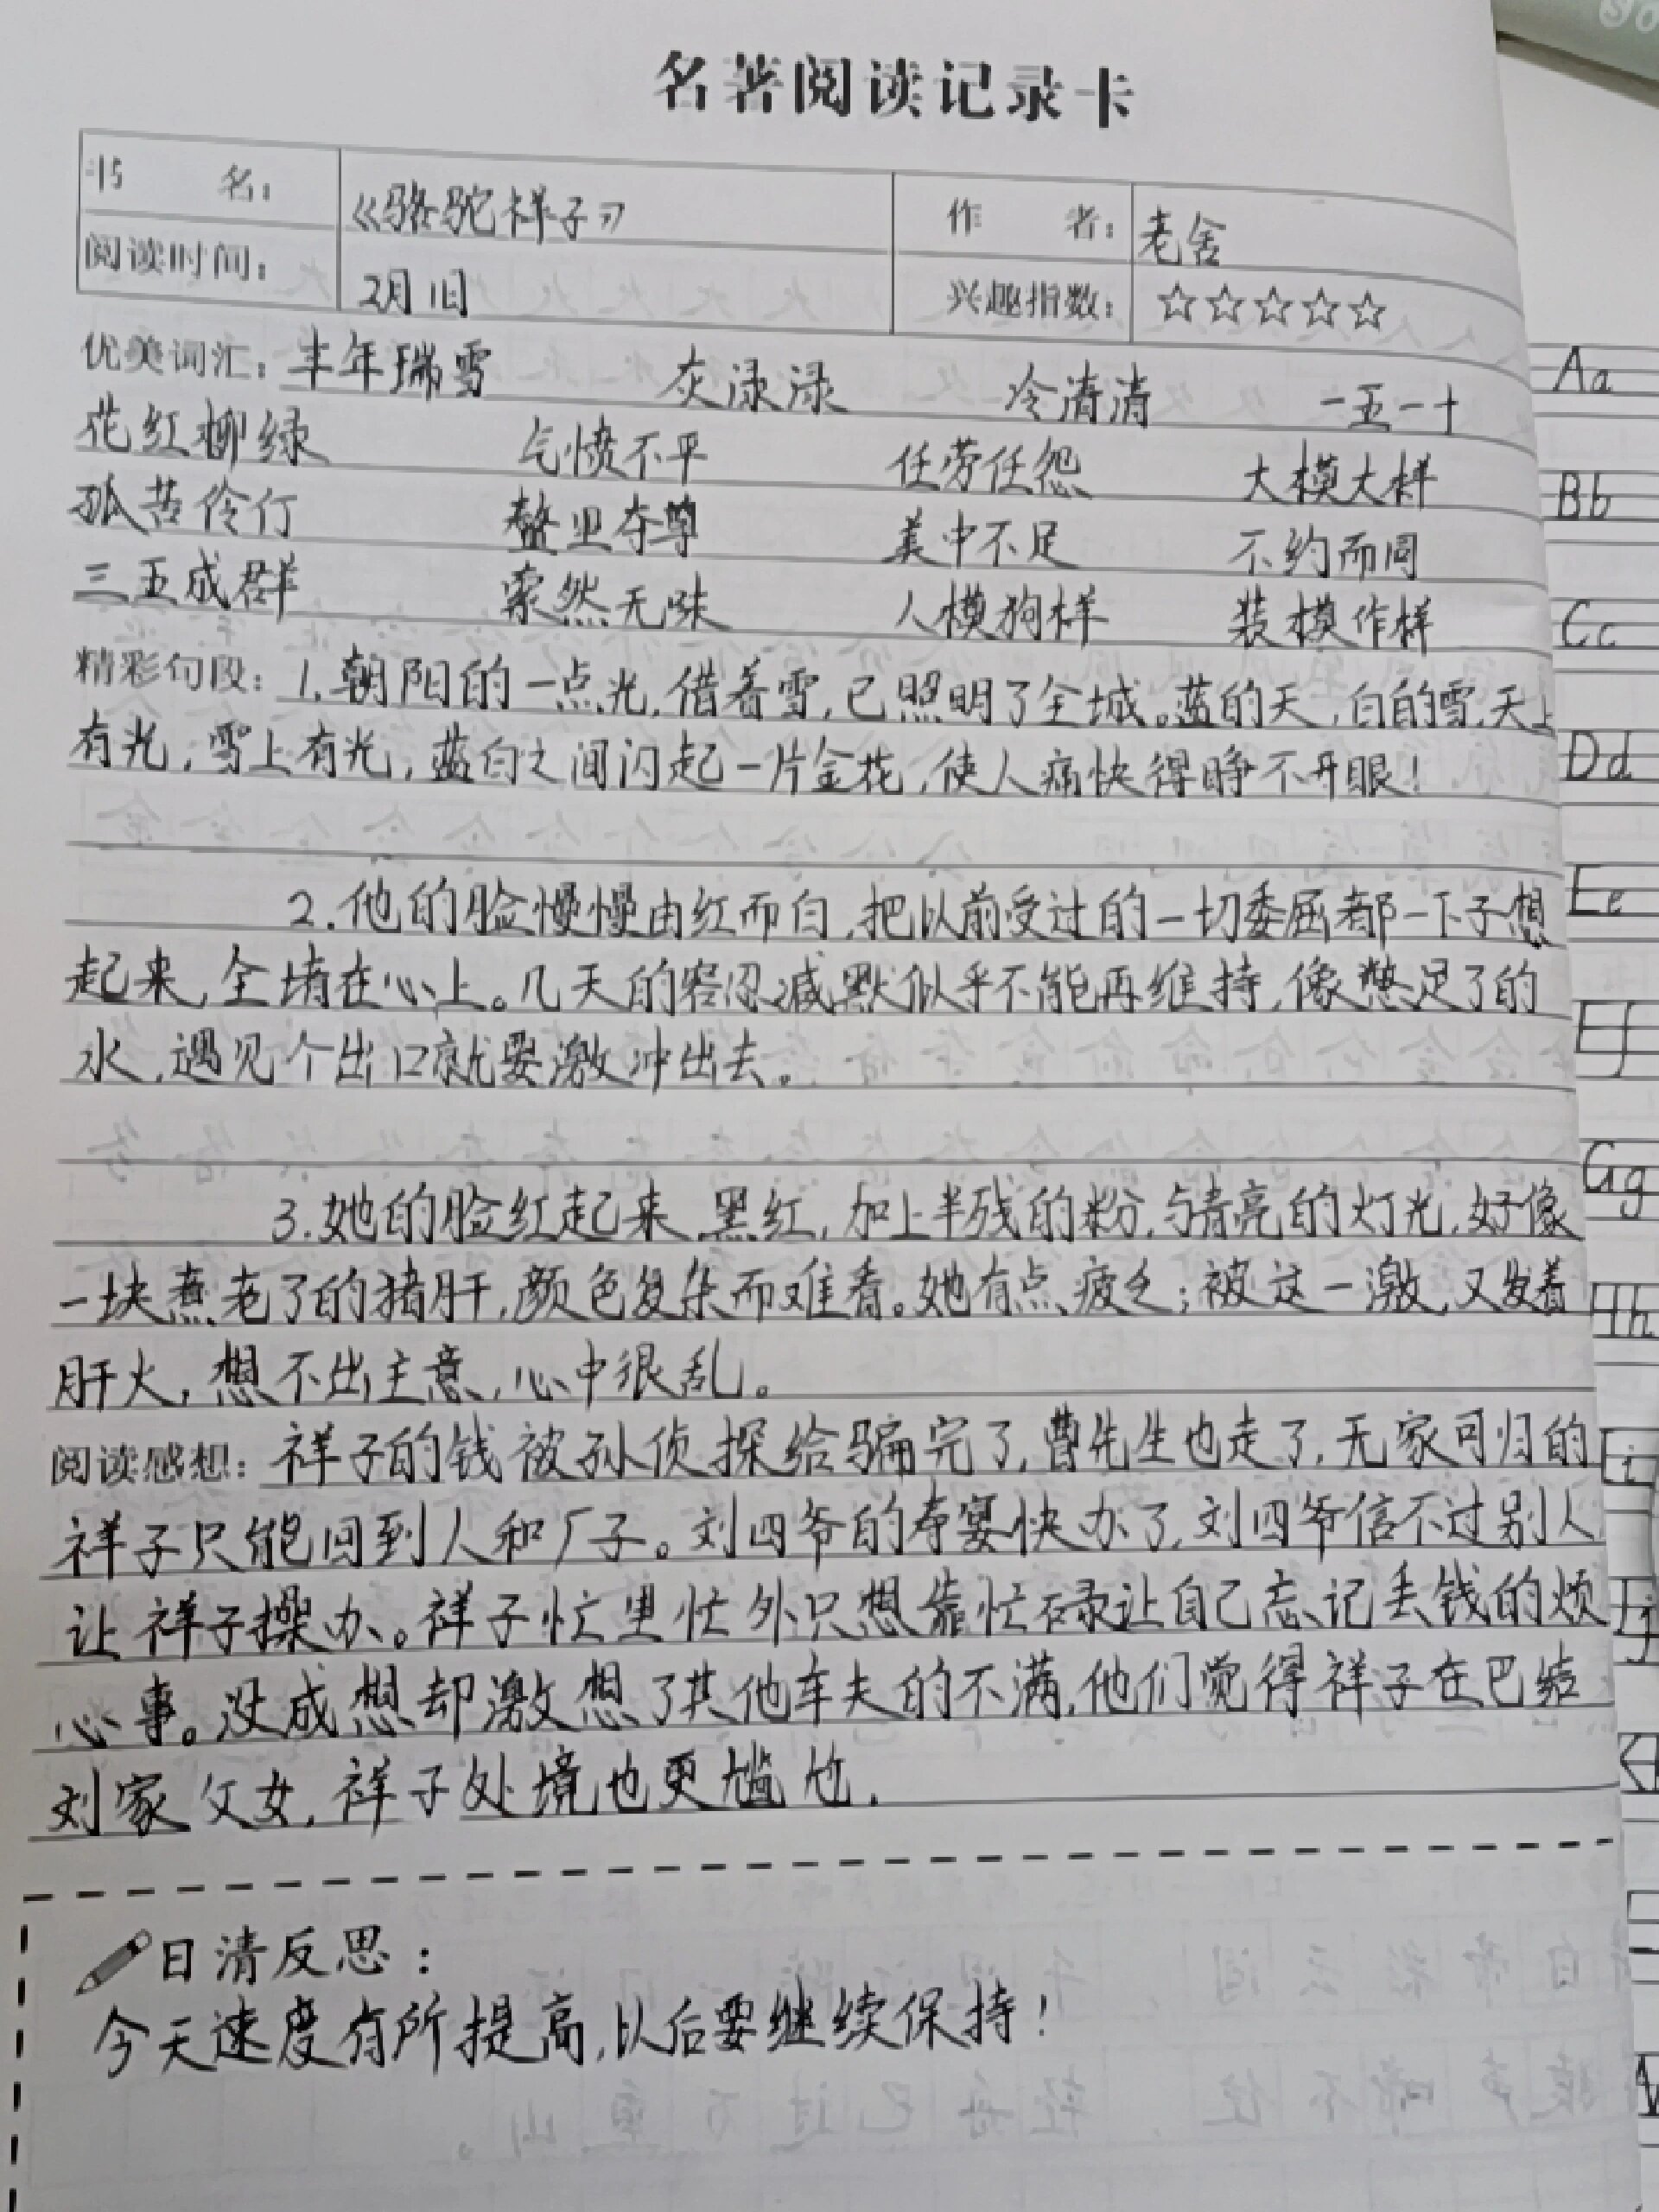 名著阅读记录卡
书 名: 《骆驼祥子》 作 者: 老舍
阅读时间: 2月1日 兴趣指数: ☆☆☆☆☆
优美词汇: 丰年瑞雪 灰渌渌 冷清清 一五一十
花红柳绿 气愤不平 任劳任怨 大模大样
孤苦伶仃 鳌里夺尊 美中不足 不约而同
三五成群 索然无味 人模狗样 装模作样
精彩句段: 1.朝阳的一点光,借着雪,已照明了全城。蓝的天,白的雪,天上
有光,雪上有光,蓝白之间闪起一片金花,使人痛快得睁不开眼!
2.他的脸慢慢由红而白,把以前受过的一切委屈都一下子想
起来,全堵在心上。几天的容忍减默似乎不能再维持,像憋足了的
水,遇见个出口就要激冲出去。
3.她的脸红起来,黑红,加上半残的粉,与青亮的灯光,好像
一块煮老了的猪肝,颜色复杂而难看。她有点疲乏;被这一激,又发着
肝火,想不出主意,心中很乱。
阅读感想: 祥子的钱被孙侦探给骗完了,曹先生也走了,无家可归的
祥子只能回到人和厂子。刘四爷的寿宴快办了,刘四爷信不过别人
让祥子操办。祥子忙里忙外只想靠忙碌让自己忘记丢钱的烦
心事。没成想却激想了其他车夫的不满,他们觉得祥子在巴结
刘家父女,祥子处境也更尴尬.
日清反思:
今天速度有所提高,以后要继续保持!
Aa
Bb
Cc
Dd
Ee
Ff
Gg
Hh